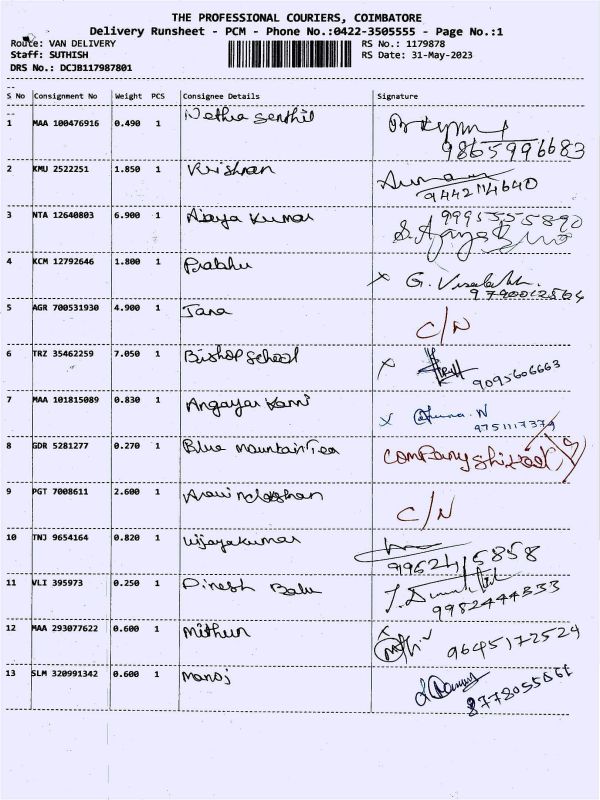 THE PROFESSIONAL COURIERS, COIMBATORE
Delivery Runsheet - PCM - Phone No.:0422-3505555 - Page No.:1
Route: VAN DELIVERY RS No.: 1179878
Staff: SUTHISH RS Date: 31-May-2023
DRS No.: DCJB117987801
S No Consignment No Weight PCS Consignee Details Signature
1 MAA 100476916 0.490 1 Nethra Senthil
9865996683
2 KMU 2522251 1.850 1 Krishnan
9442114640
3 NTA 12640803 6.900 1 Ajaya Kumar 9995555890
S. Ajaya
4 KCM 12792646 1.800 1 Prabhu X G.
9790012564
5 AGR 700531930 4.900 1 Jana C/N
6 TRZ 35462259 7.050 1 Bishop School X
9095606663
7 MAA 101815089 0.830 1 Angayar Kanni X
9751117374
8 GDR 5281277 0.270 1 Blue mountain Tea Company shifted
9 PGT 7008611 2.600 1 C/N
10 TNJ 9654164 0.820 1 Vijayakumar
9962415858
11 VLI 395973 0.250 1 Dinesh Babu
9952444333
12 MAA 293077622 0.600 1 Mithun X 9645172524
13 SLM 320991342 0.600 1 Manoj
8778055561